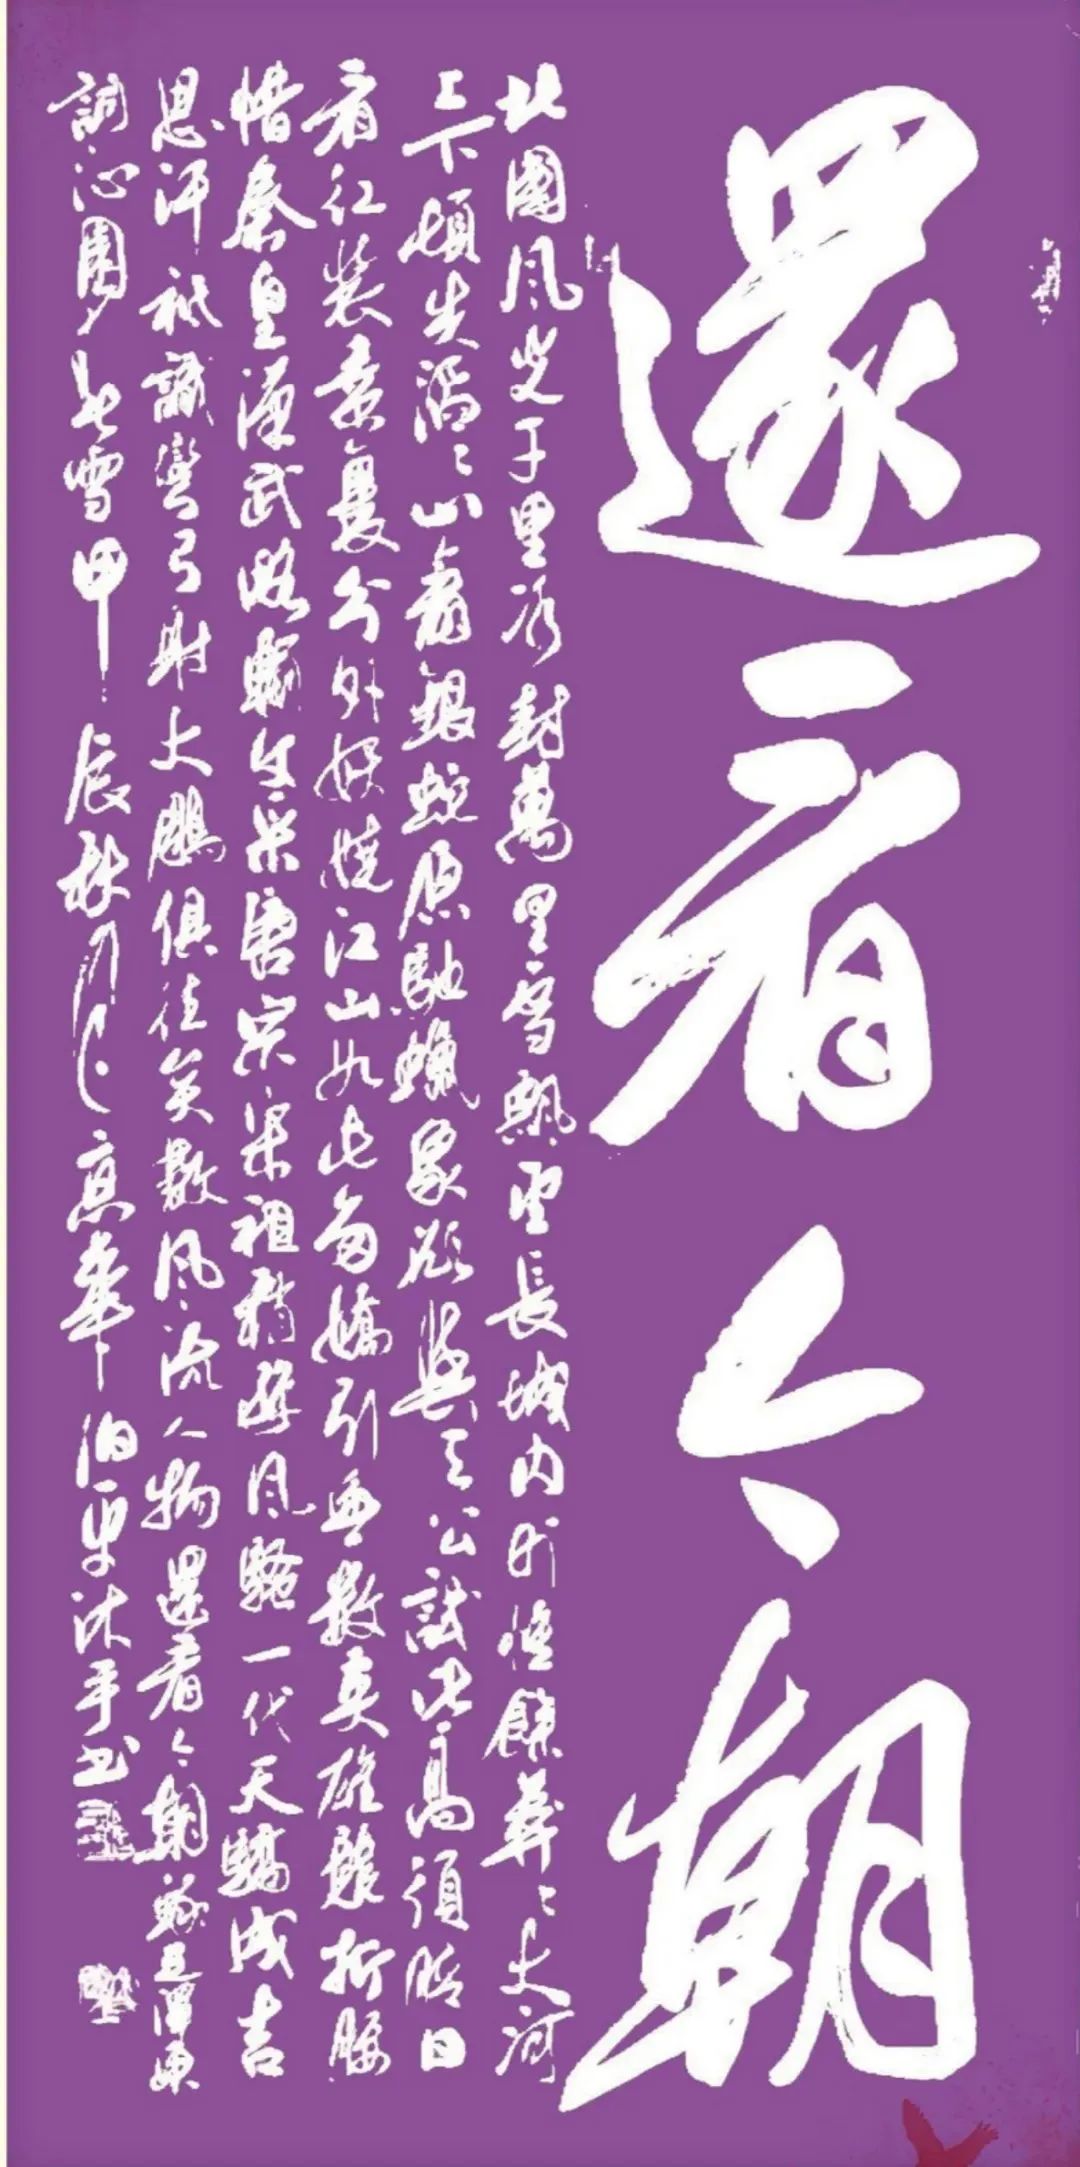 還看今朝
北國風光千里冰封萬里雪飄望長城內外惟餘莽〻大河
上下頓失滔〻山舞銀蛇原馳蠟象欲與天公試比高須晴日
看紅裝素裹分外妖嬈江山如此多嬌引無數英雄競折腰
惜秦皇漢武略輸文采唐宗宋祖稍遜風騷一代天驕成吉
思汗祗識彎弓射大鵰俱往矣數風流人物還看今朝錄毛澤東
詞沁園春雪甲辰秋月於京華沐手書